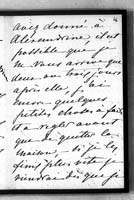 avez donné à
Alexandrine, il est
possible que je
n'arrive que
deux ou trois jours
après elle, j'ai
encore quelques
petites choses à fai
et à régler avant
que de quitter la
maison, si je
plus vite je
viendrai dès que je